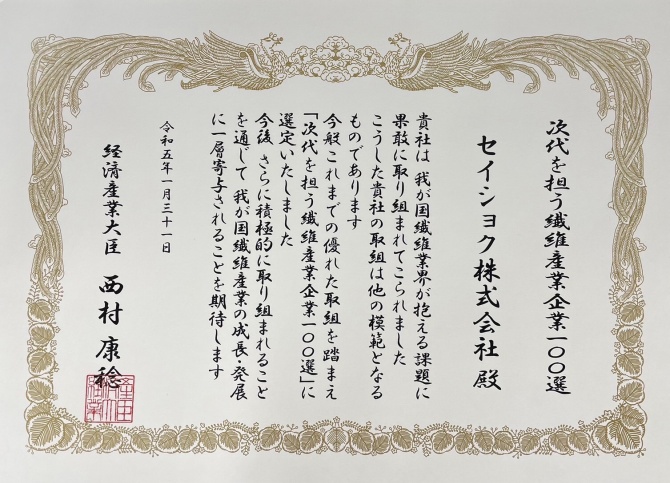 次代を担う繊維産業企業一〇〇選
セイショク株式会社 殿
貴社は 我が国繊維業界が抱える課題に
果敢に取り組まれてこられました
こうした貴社の取組は他の模範となる
ものであります
今般 これまでの優れた取組を踏まえ
「次代を担う繊維産業企業一〇〇選」に
選定いたしました
今後 さらに積極的に取り組まれること
を通じて 我が国繊維産業の成長・発展
に一層寄与されることを期待します
令和五年一月三十一日
経済産業大臣 西村 康稔